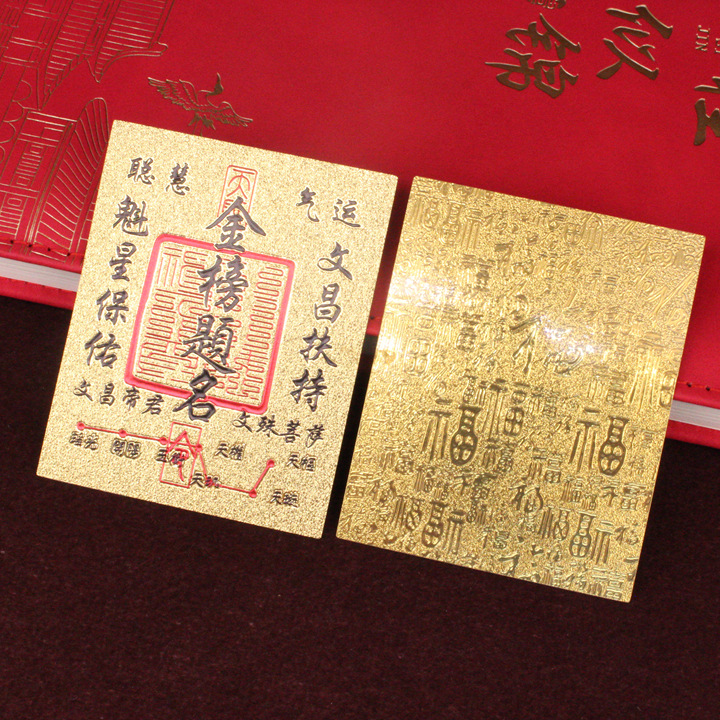 聪慧
气运
金榜题名
魁星保佑
文昌扶持
文昌帝君
文殊菩萨
摇光
開陽
玉衡
天權
天樞
天璇
福
似锦